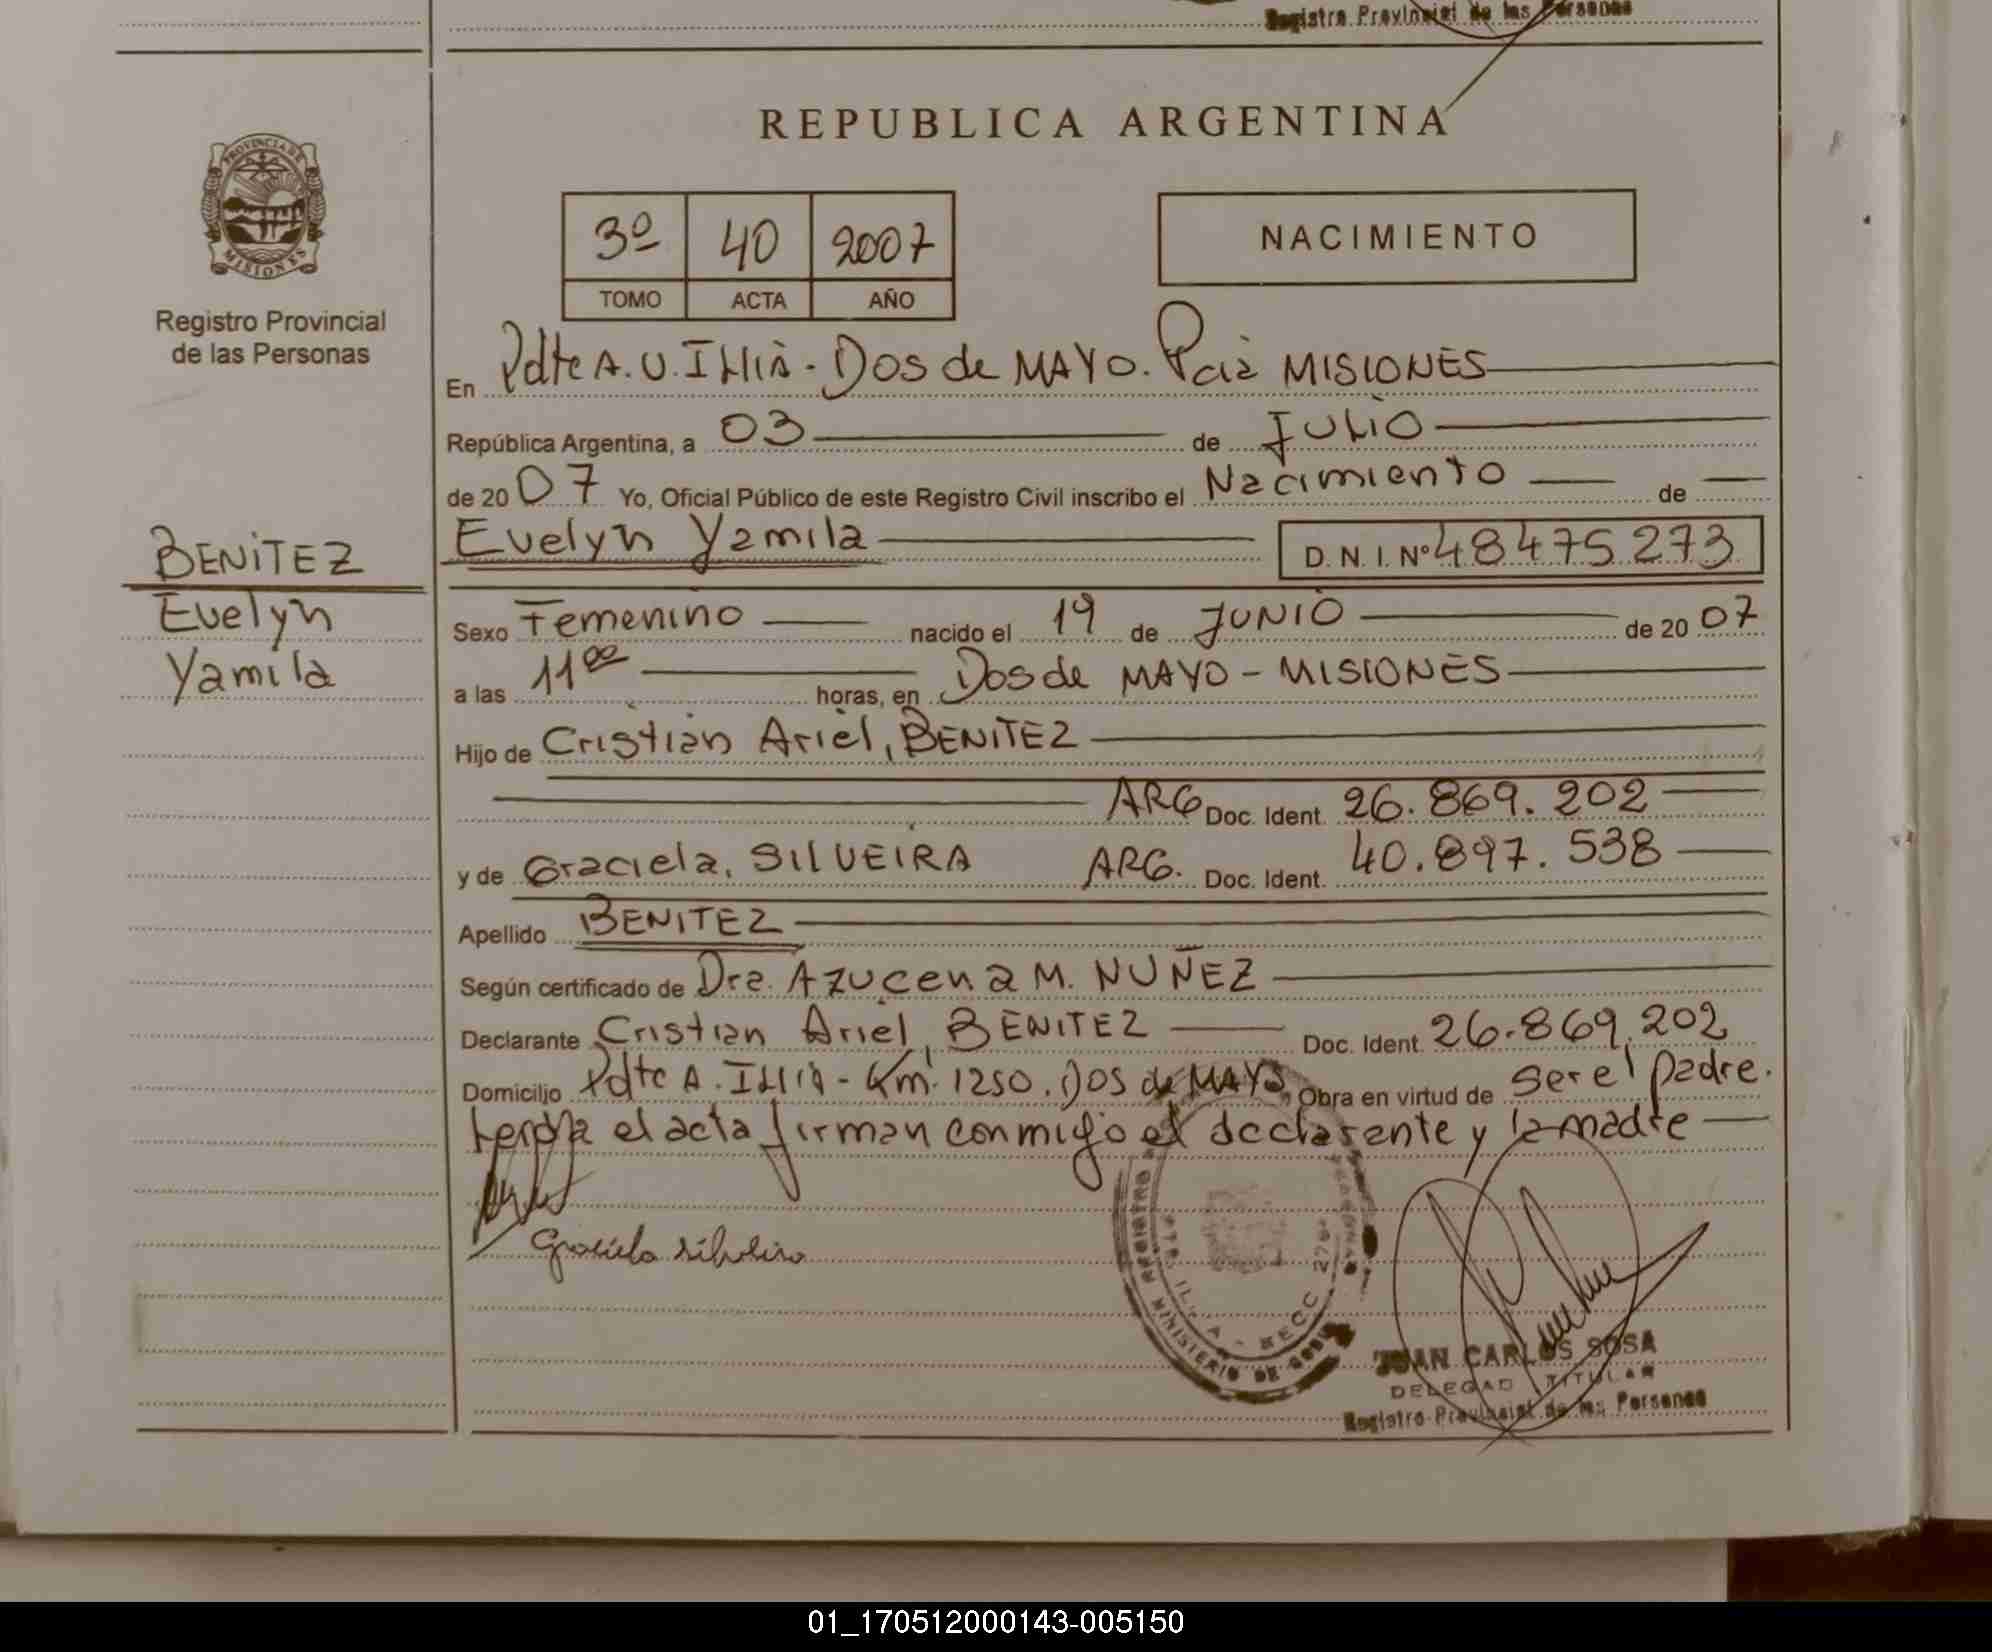 Registro Provincial de las Personas
REPUBLICA ARGENTINA
PROVINCIA DE
MISIONES
Registro Provincial
de las Personas
3º 40 2007
TOMO ACTA AÑO
NACIMIENTO
En Pdte A. U. Illia - Dos de MAYO. Pcia MISIONES
República Argentina, a 03 de JULIO
de 2007 Yo, Oficial Público de este Registro Civil inscribo el Nacimiento de
BENITEZ
Evelyn
Yamila
Evelyn Yamila D. N. I. Nº 48475.273
Sexo Femenino nacido el 19 de JUNIO de 2007
a las 11⁰⁰ horas, en Dos de MAYO - MISIONES
Hijo de Cristian Ariel, BENITEZ
ARG Doc. Ident. 26.869.202
y de Graciela, SILVEIRA ARG. Doc. Ident. 40.897.538
Apellido BENITEZ
Según certificado de Dra. AZUCENA M. NUÑEZ
Declarante Cristian Ariel, BENITEZ Doc. Ident. 26.869.202
Domicilio Pdte A. Illia - Km. 1250. Dos de MAYO Obra en virtud de ser el padre.
el acta firman conmigo el declarante y la madre
Graciela Silveira
REGISTRO PERSONAS
MINISTERIO DE GOB
JUAN CARLOS SOSA
DELEGAD TITULAR
Registro Provincial de las Personas
01_170512000143-005150